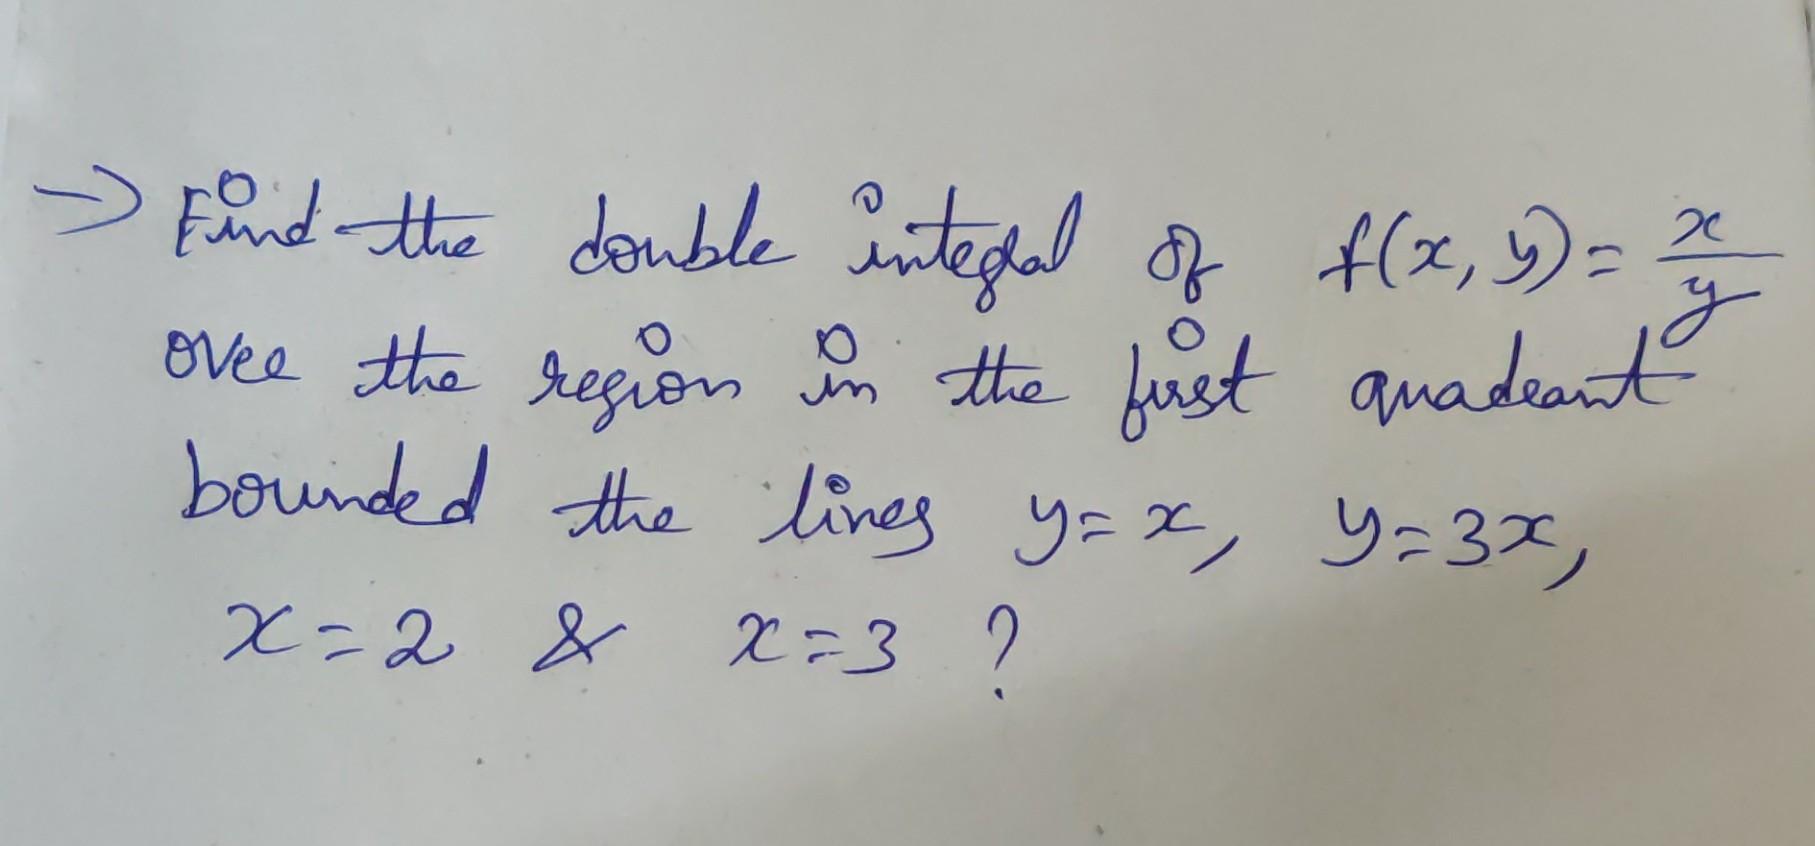 → Find the double integral of f(x, y) = x/y
over the region in the first quadrant
bounded the lines y = x, y = 3x,
x = 2 & x = 3 ?